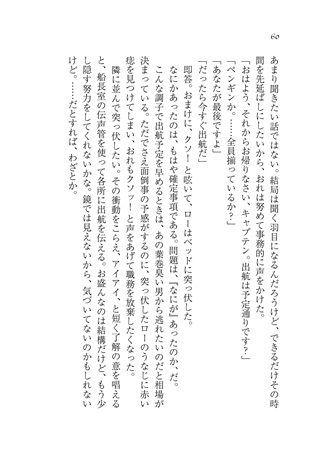 60
あまり聞きたい話ではない。結局は聞く羽目になるんだろうけど、できるだけその時
間を先延ばしにしたいから、おれは努めて事務的に声をかけた。
「おはよう、それからお帰りなさい、キャプテン。出航は予定通りです？」
「ペンギンか。……全員揃っているか？」
「あなたが最後ですよ」
「だったら今すぐ出航だ」
即答。おまけに、クソ！と呟いて、ローはベッドに突っ伏した。
なにかあったのは、もはや確定事項である。問題は、『なにが』あったのか、だ。
こんな調子で出航予定を早めるときは、あの葉巻臭い男から逃れたいのだと相場が
決まっている。ただでさえ面倒事の予感がするのに、突っ伏したローのうなじに赤い
痣を見つけてしまい、おれもクソッ！と声をあげて職務を放棄したくなった。
隣に並んで突っ伏したい。その衝動をこらえ、アイアイ、と短く了解の意を唱える
と、船長室の伝声管を使って各所に出航を伝える。お盛んなのは結構だけど、もう少
し隠す努力をしてくれないかな。鏡では見えないから、気づいてないのかもしれない
けど。……だとすれば、わざとか。